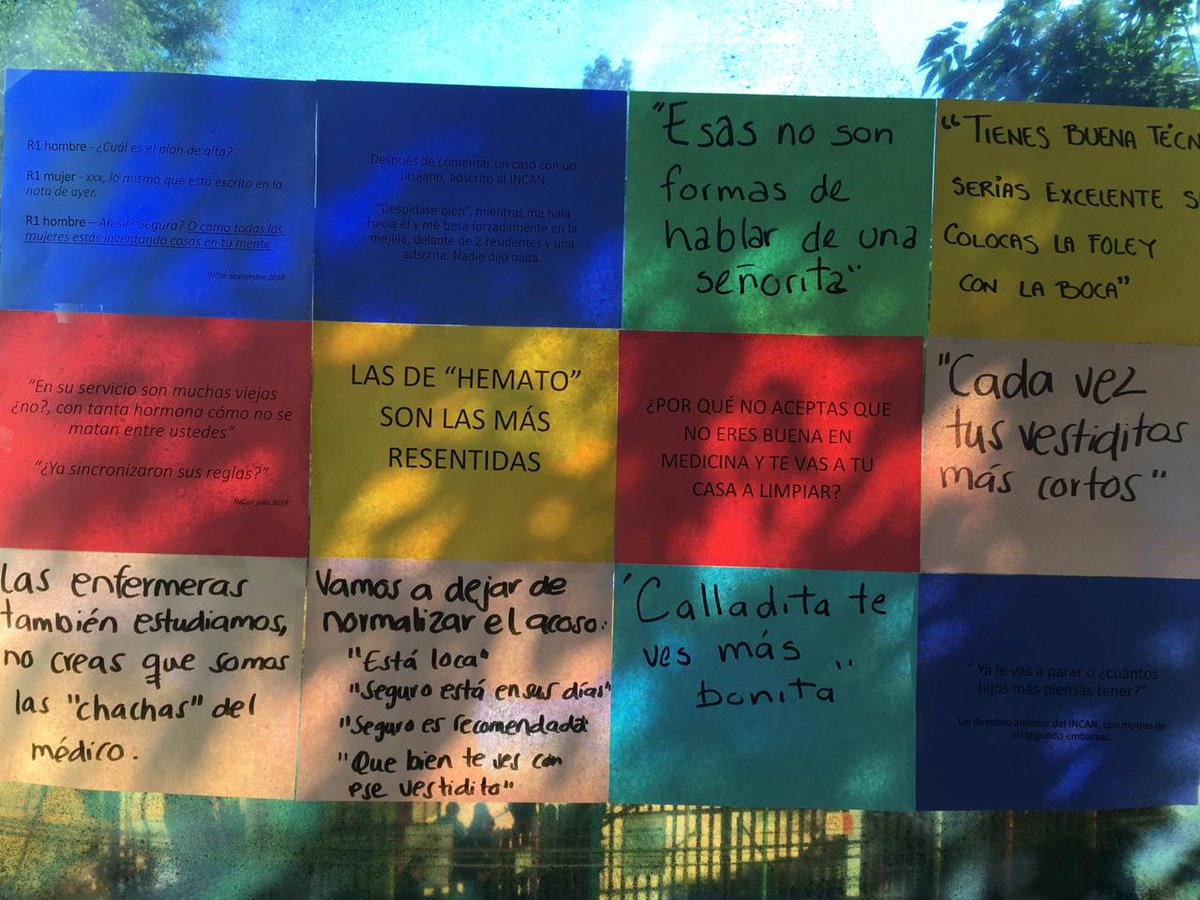 R1 hombre - ¿Cuál es el plan de alta?
R1 mujer - xxx, lo mismo que está escrito en la
nota de ayer.
R1 hombre – Ah sii? Segura? O como todas las
mujeres estás inventando cosas en tu mente.
INCan septiembre 2019
Después de comentar un caso con un
cirujano, adscrito al INCAN.
"Despídase bien", mientras me hala
hacia él y me besa forzadamente en la
mejilla, delante de 2 residentes y una
adscrita. Nadie dijo nada.
"Esas no son
formas de
hablar de una
señorita"
"TIENES BUENA TÉCN
SERÍAS EXCELENTE S
COLOCAS LA FOLEY
CON LA BOCA"
"En su servicio son muchas viejas
¿no?, con tanta hormona cómo no se
matan entre ustedes"
"¿Ya sincronizaron sus reglas?"
INCan julio 2019
LAS DE "HEMATO"
SON LAS MÁS
RESENTIDAS
¿POR QUÉ NO ACEPTAS QUE
NO ERES BUENA EN
MEDICINA Y TE VAS A TU
CASA A LIMPIAR?
"Cada vez
tus vestiditos
más cortos"
Las enfermeras
también estudiamos,
no creas que somos
las "chachas" del
médico.
Vamos a dejar de
normalizar el acoso:
"Está loca"
"Seguro está en sus días"
"Seguro es recomendada"
"Que bien te ves con
ese vestidito"
"Calladita te
ves más
bonita"
"Ya le vas a parar o ¿cuántos
hijos más piensas tener?"
Un directivo anterior del INCAN, con motivo de
mi segundo embarazo.